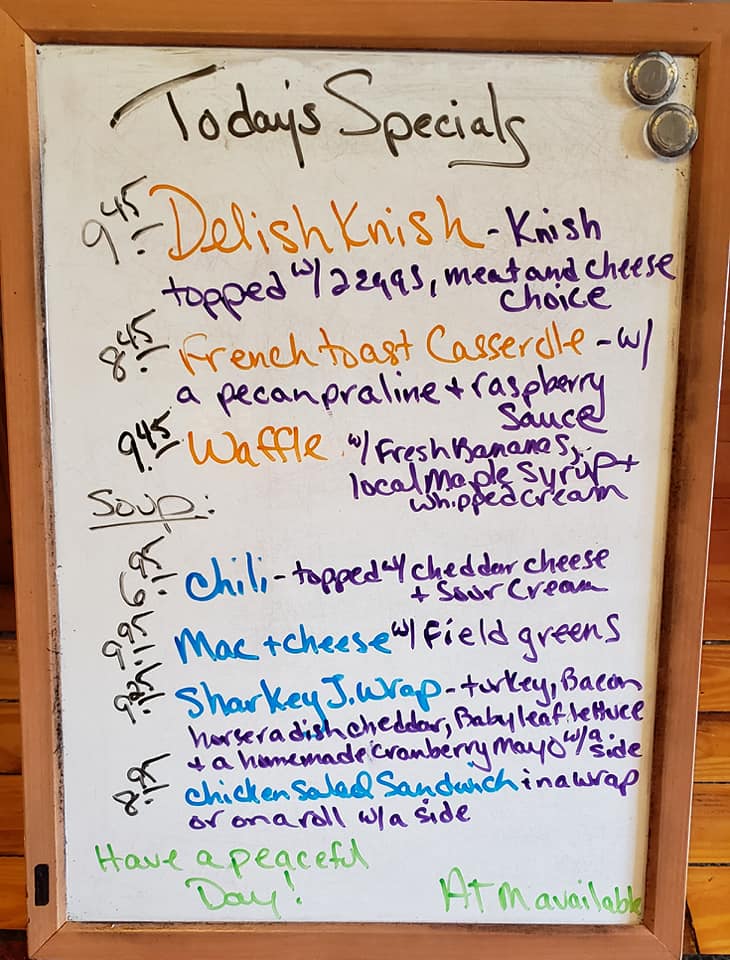 Today's Specials
9.45 Delish Knish - Knish
topped w/ 2 eggs, meat and cheese
choice
8.45 French toast Casserole - w/
a pecan praline + raspberry
sauce
9.45 Waffle w/ Fresh Bananas,
local maple syrup +
whipped cream
Soup:
Chili - topped w/ cheddar cheese
+ sour cream
Mac + cheese w/ field greens
Sharkey J. Wrap - turkey, Bacon
horseradish cheddar, Baby leaf lettuce
+ a homemade cranberry mayo w/ a side
Chicken Salad Sandwich in a wrap
or on a roll w/ a side
Have a peaceful
Day!
ATM available